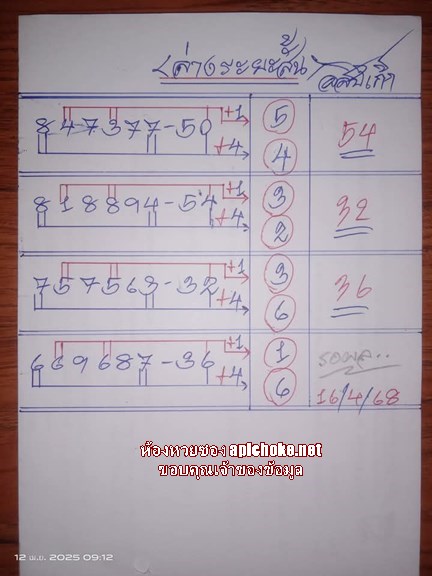 ล่างระยะสั้น
847377-50 +1 +4 5 4 54
818894-54 +1 +4 3 2 32
757563-32 +1 +4 3 6 36
669687-36 +1 +4 1 6 รอผล..
16/4/68
ห้องหวยซอง apichoke.net
ขอบคุณเจ้าของข้อมูล
12 พ.ย. 2025 09:12